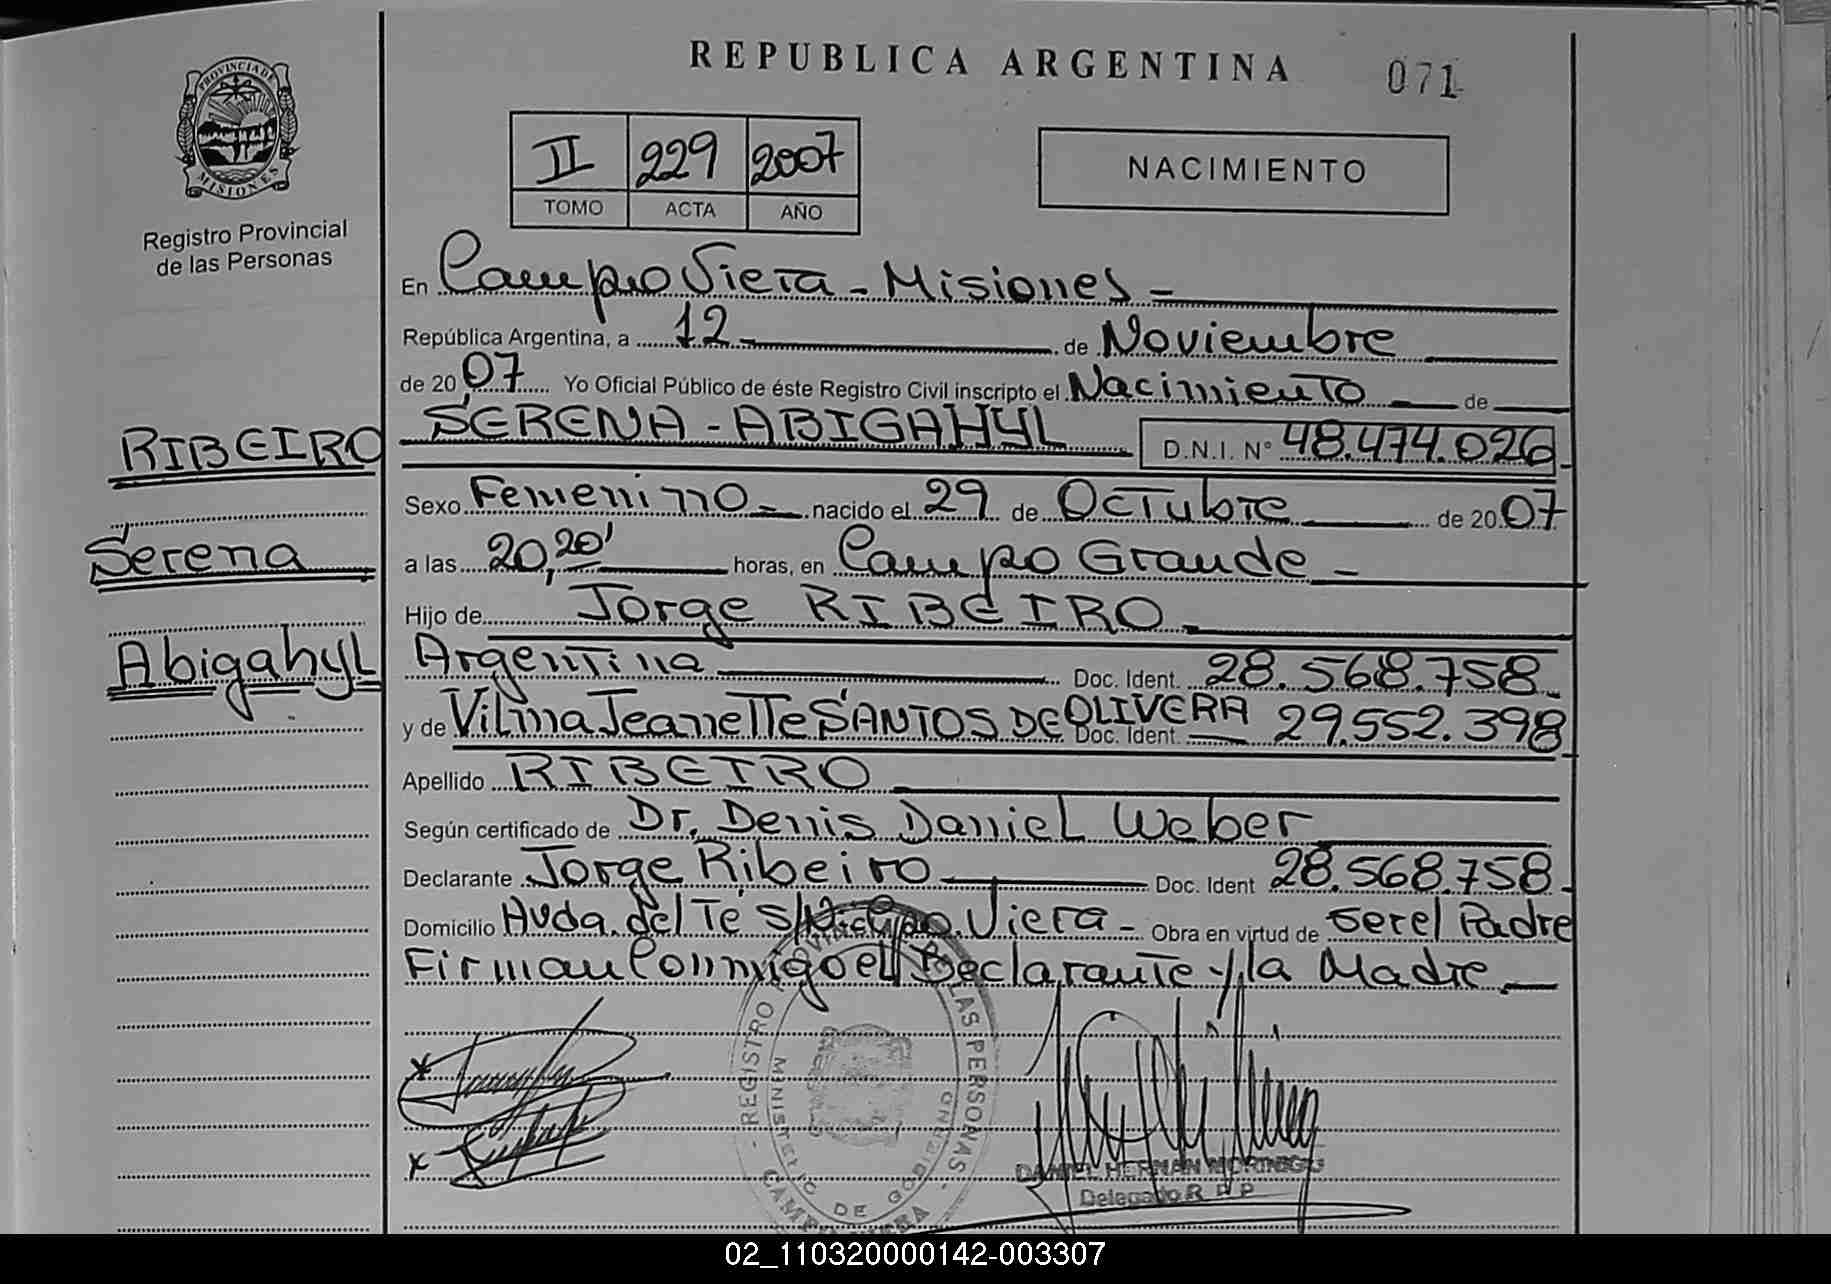 REPUBLICA ARGENTINA 071
PROVINCIA DE MISIONES
Registro Provincial
de las Personas
II 229 2007
TOMO ACTA AÑO
NACIMIENTO
En Campo Viera - Misiones -
República Argentina, a 12 de Noviembre
de 2007 Yo Oficial Público de éste Registro Civil inscripto el Nacimiento de
SERENA - ABIGAHYL D.N.I. N° 48.474.026
RIBEIRO
Serena
Abigahyl
Sexo Femenino nacido el 29 de Octubre de 2007
a las 20,20' horas, en Campo Grande -
Hijo de Jorge RIBEIRO
Argentina Doc. Ident. 28.568.758
y de Vilma Jeanette SANTOS DE OLIVERA Doc. Ident. 29.552.398
Apellido RIBEIRO
Según certificado de Dr. Denis Daniel Weber
Declarante Jorge Ribeiro Doc. Ident 28.568.758
Domicilio Avda. del Té S/N. Cpo. Viera - Obra en virtud de ser el Padre
Firman Conmigo el Declarante y la Madre
REGISTRO PROVINCIAL DE LAS PERSONAS
MINISTERIO DE GOBIERNO
CAMPO VIERA
DANIEL HERNAN MORINIGO
Delegado R P P
02_110320000142-003307